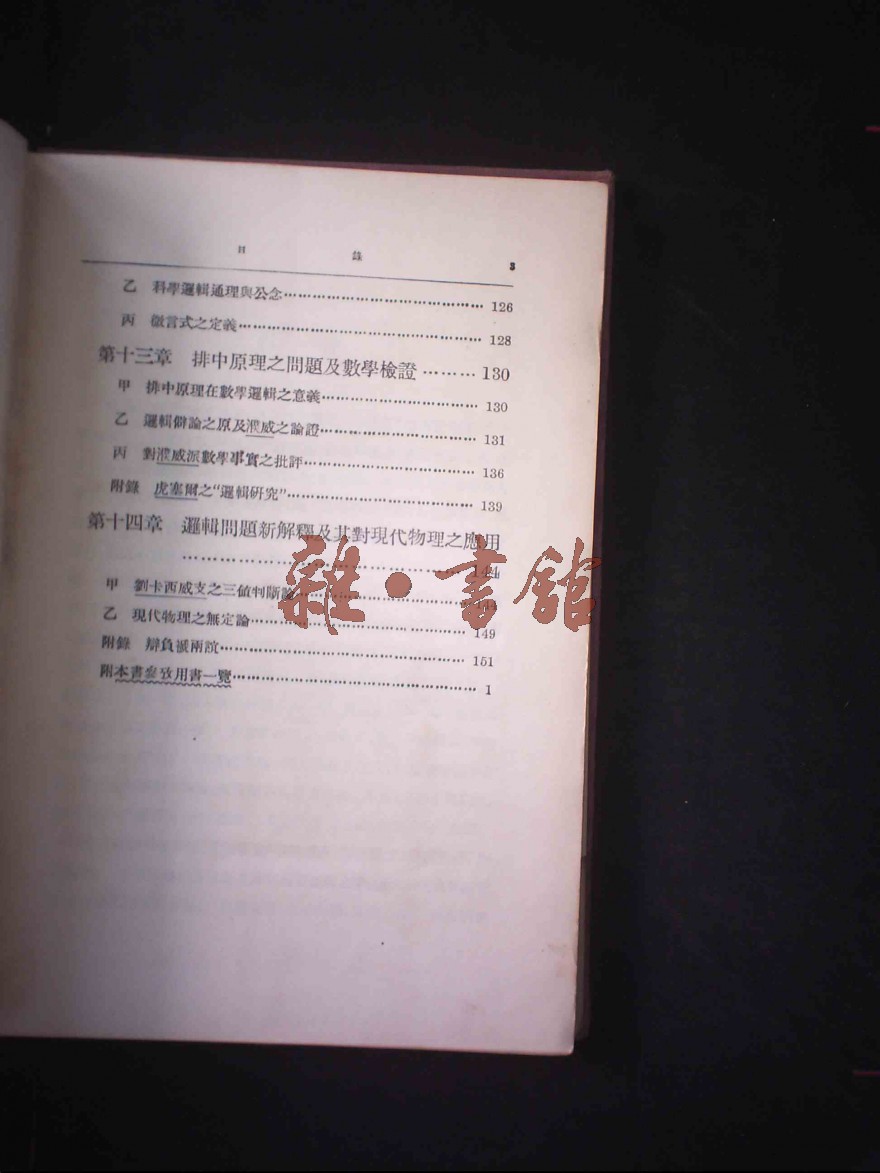 目 錄 3
乙 科學邏輯通理與公念 126
丙 徵言式之定義 128
第十三章 排中原理之問題及數學檢證 130
甲 排中原理在數學邏輯之意義 130
乙 邏輯僻論之原及濮威之論證 131
丙 對濮威派數學事實之批評 136
附錄 虎塞爾之“邏輯研究” 139
第十四章 邏輯問題新解釋及其對現代物理之應用
144
甲 劉卡西威支之三値判斷論 144
乙 現代物理之無定論 149
附錄 辯負誠兩誼 151
附本書參攷用書一覽 1
雜·書館